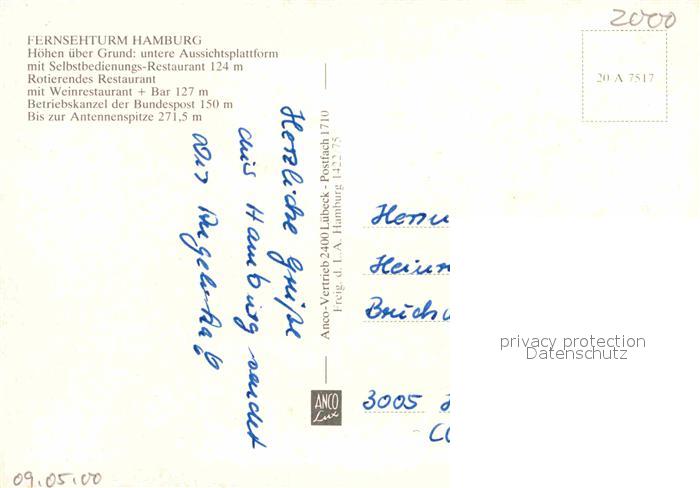 FERNSEHTURM HAMBURG
Höhen über Grund: untere Aussichtsplattform
mit Selbstbedienungs-Restaurant 124 m
Rotierendes Restaurant
mit Weinrestaurant + Bar 127 m
Betriebskanzel der Bundespost 150 m
Bis zur Antennenspitze 271,5 m
2000
20 A 7517
Herzliche Grüße
aus Hamburg sendet
Dir
Anco-Vertrieb 2400 Lübeck - Postfach 1710
Freig. d. L.A. Hamburg 1422/75
ANCO
Lux
Herrn
Heinr
3005
privacy protection
Datenschutz
09.05.00